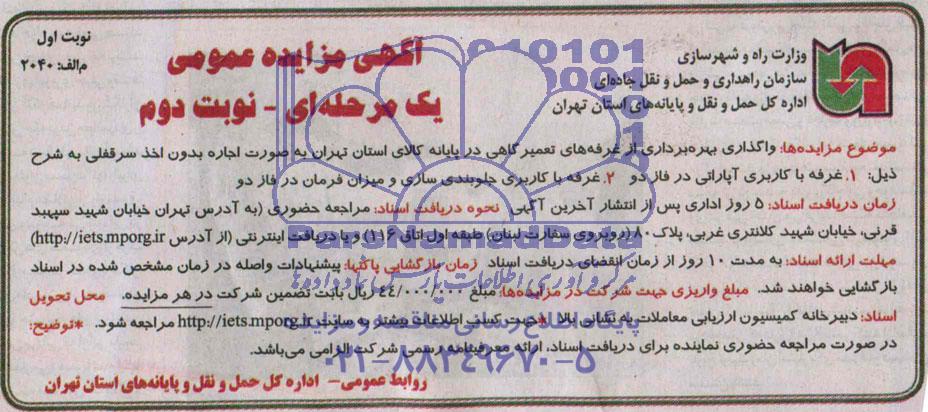 نوبت اول
م الف: ۲۰۴۰
آگهی مزایده عمومی
یک مرحله‌ای - نوبت دوم
وزارت راه و شهرسازی
سازمان راهداری و حمل و نقل جاده‌ای
اداره کل حمل و نقل و پایانه‌های استان تهران
موضوع مزایده‌ها: واگذاری بهره‌برداری از غرفه‌های تعمیرگاهی در پایانه کالای استان تهران به صورت اجاره بدون اخذ سرقفلی به شرح
ذیل: ۱. غرفه با کاربری آپاراتی در فاز دو ۲. غرفه با کاربری جلوبندی سازی و میزان فرمان در فاز دو
زمان دریافت اسناد: ۵ روز اداری پس از انتشار آخرین آگهی نحوه دریافت اسناد: مراجعه حضوری (به آدرس تهران خیابان شهید سپهبد
قرنی، خیابان شهید کلانتری غربی، پلاک ۸۰ (روبروی سفارت لبنان) طبقه اول اتاق ۱۱۶) و یا دریافت اینترنتی (از آدرس http://iets.mporg.ir)
مهلت ارائه اسناد: به مدت ۱۰ روز از زمان انقضای دریافت اسناد زمان بازگشایی پاکتها: پیشنهادات واصله در زمان مشخص شده در اسناد
بازگشایی خواهند شد. مبلغ واریزی جهت شرکت در مزایده‌ها: مبلغ ۴۴/۰۰۰/۰۰۰ ریال بابت تضمین شرکت در هر مزایده. محل تحویل
اسناد: دبیرخانه کمیسیون ارزیابی معاملات به نشانی بالا *جهت کسب اطلاعات بیشتر به سایت http://iets.mporg.ir مراجعه شود. *توضیح:
در صورت مراجعه حضوری نماینده برای دریافت اسناد، ارائه معرفینامه رسمی شرکت الزامی می‌باشد.
روابط عمومی- اداره کل حمل و نقل و پایانه‌های استان تهران
پایگاه اطلاع رسانی مناقصه و مزایده
۰۲۱-۸۸۳۴۹۶۷۰-۵